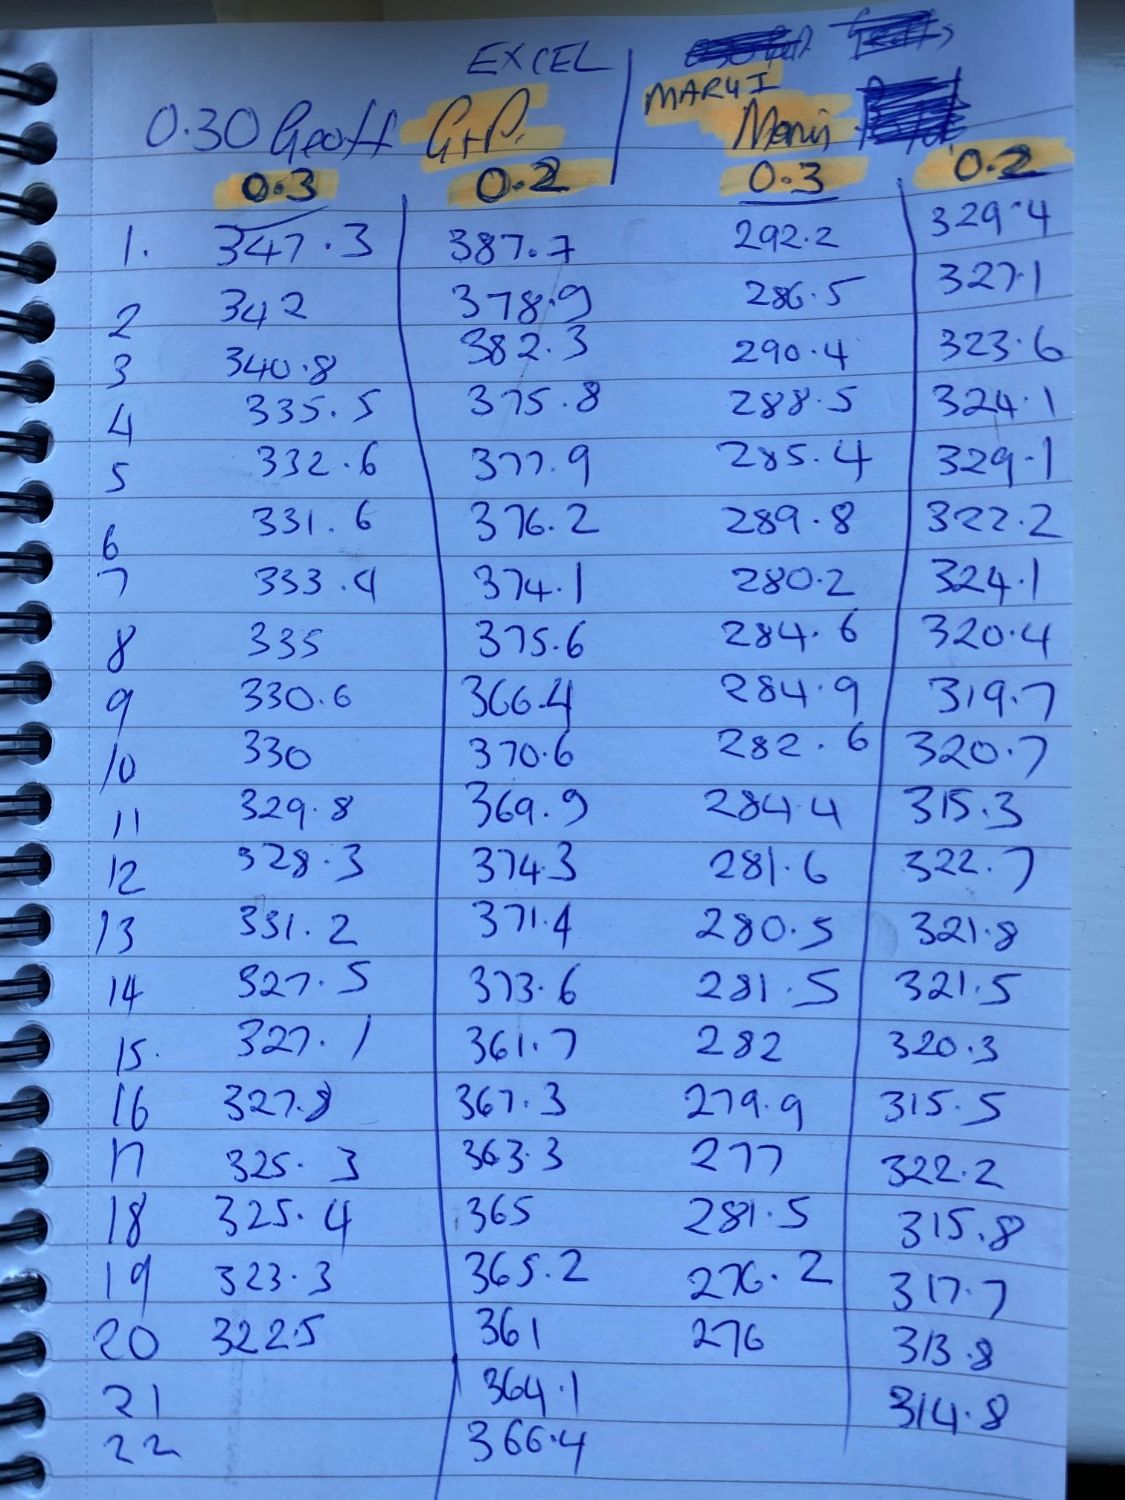 EXCEL
MARYI
0.30 Geoff G+P. Meniy
0.3 0.2 0.3 0.2
1. 347.3 387.7 292.2 329.4
2 342 378.9 286.5 327.1
3 340.8 382.3 290.4 323.6
4 335.5 375.8 288.5 324.1
5 332.6 377.9 285.4 329.1
6 331.6 376.2 289.8 322.2
7 333.4 374.1 280.2 324.1
8 335 375.6 284.6 320.4
9 330.6 366.4 284.9 319.7
10 330 370.6 282.6 320.7
11 329.8 369.9 284.4 315.3
12 328.3 374.3 281.6 322.7
13 331.2 371.4 280.5 321.8
14 327.5 373.6 281.5 321.5
15. 327.1 361.7 282 320.3
16 327.8 367.3 279.9 315.5
17 325.3 363.3 277 322.2
18 325.4 365 281.5 315.8
19 323.3 365.2 276.2 317.7
20 322.5 361 276 313.8
21 364.1 314.8
22 366.4